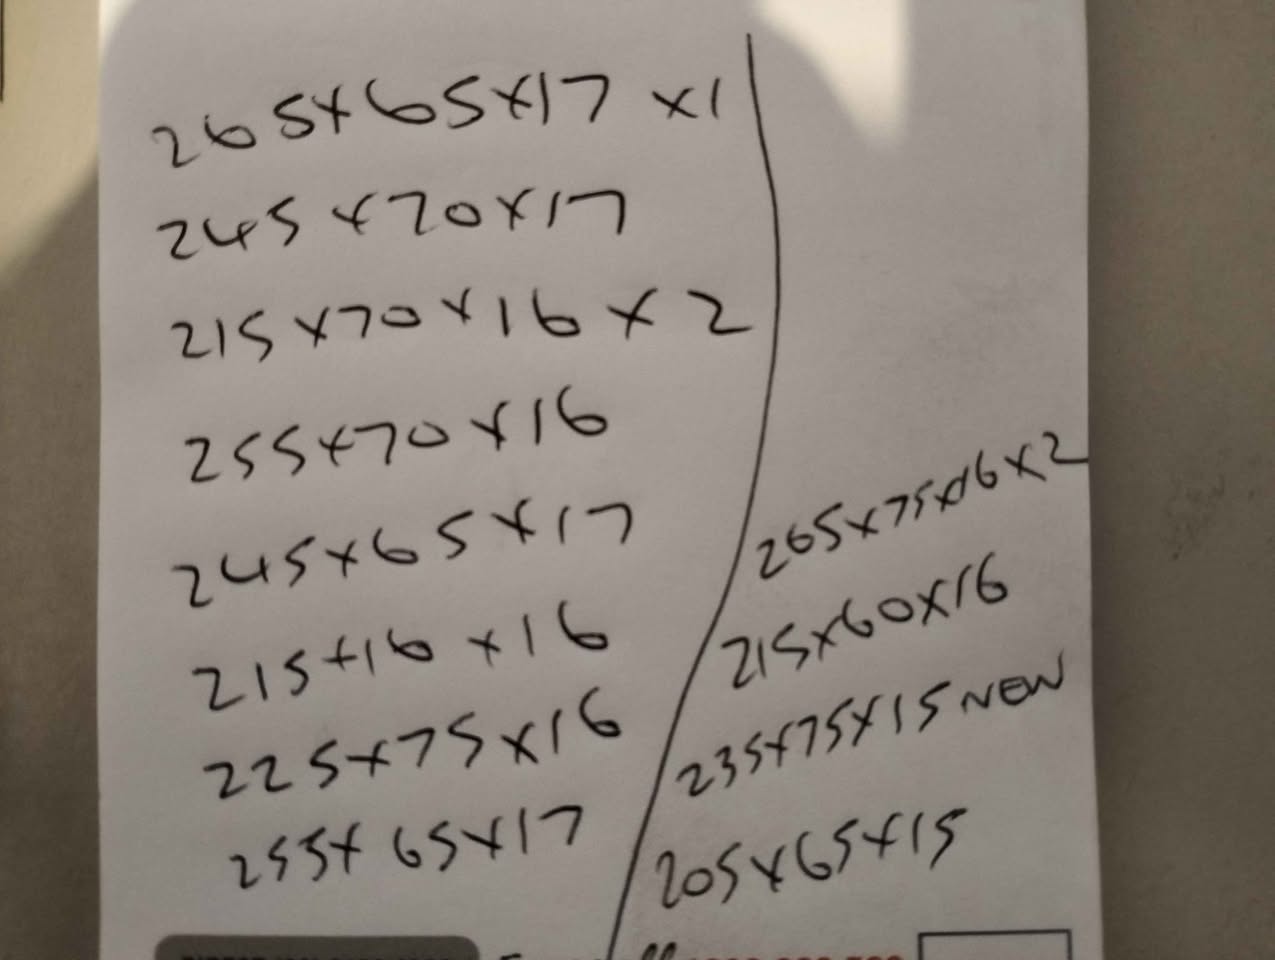 265x65x17 x1
245x70x17
215x70x16x2
255x70x16
245x65x17
215x16x16
225x75x16
255x65x17
265x75x16x2
215x60x16
235x75x15 NEW
205x65x15